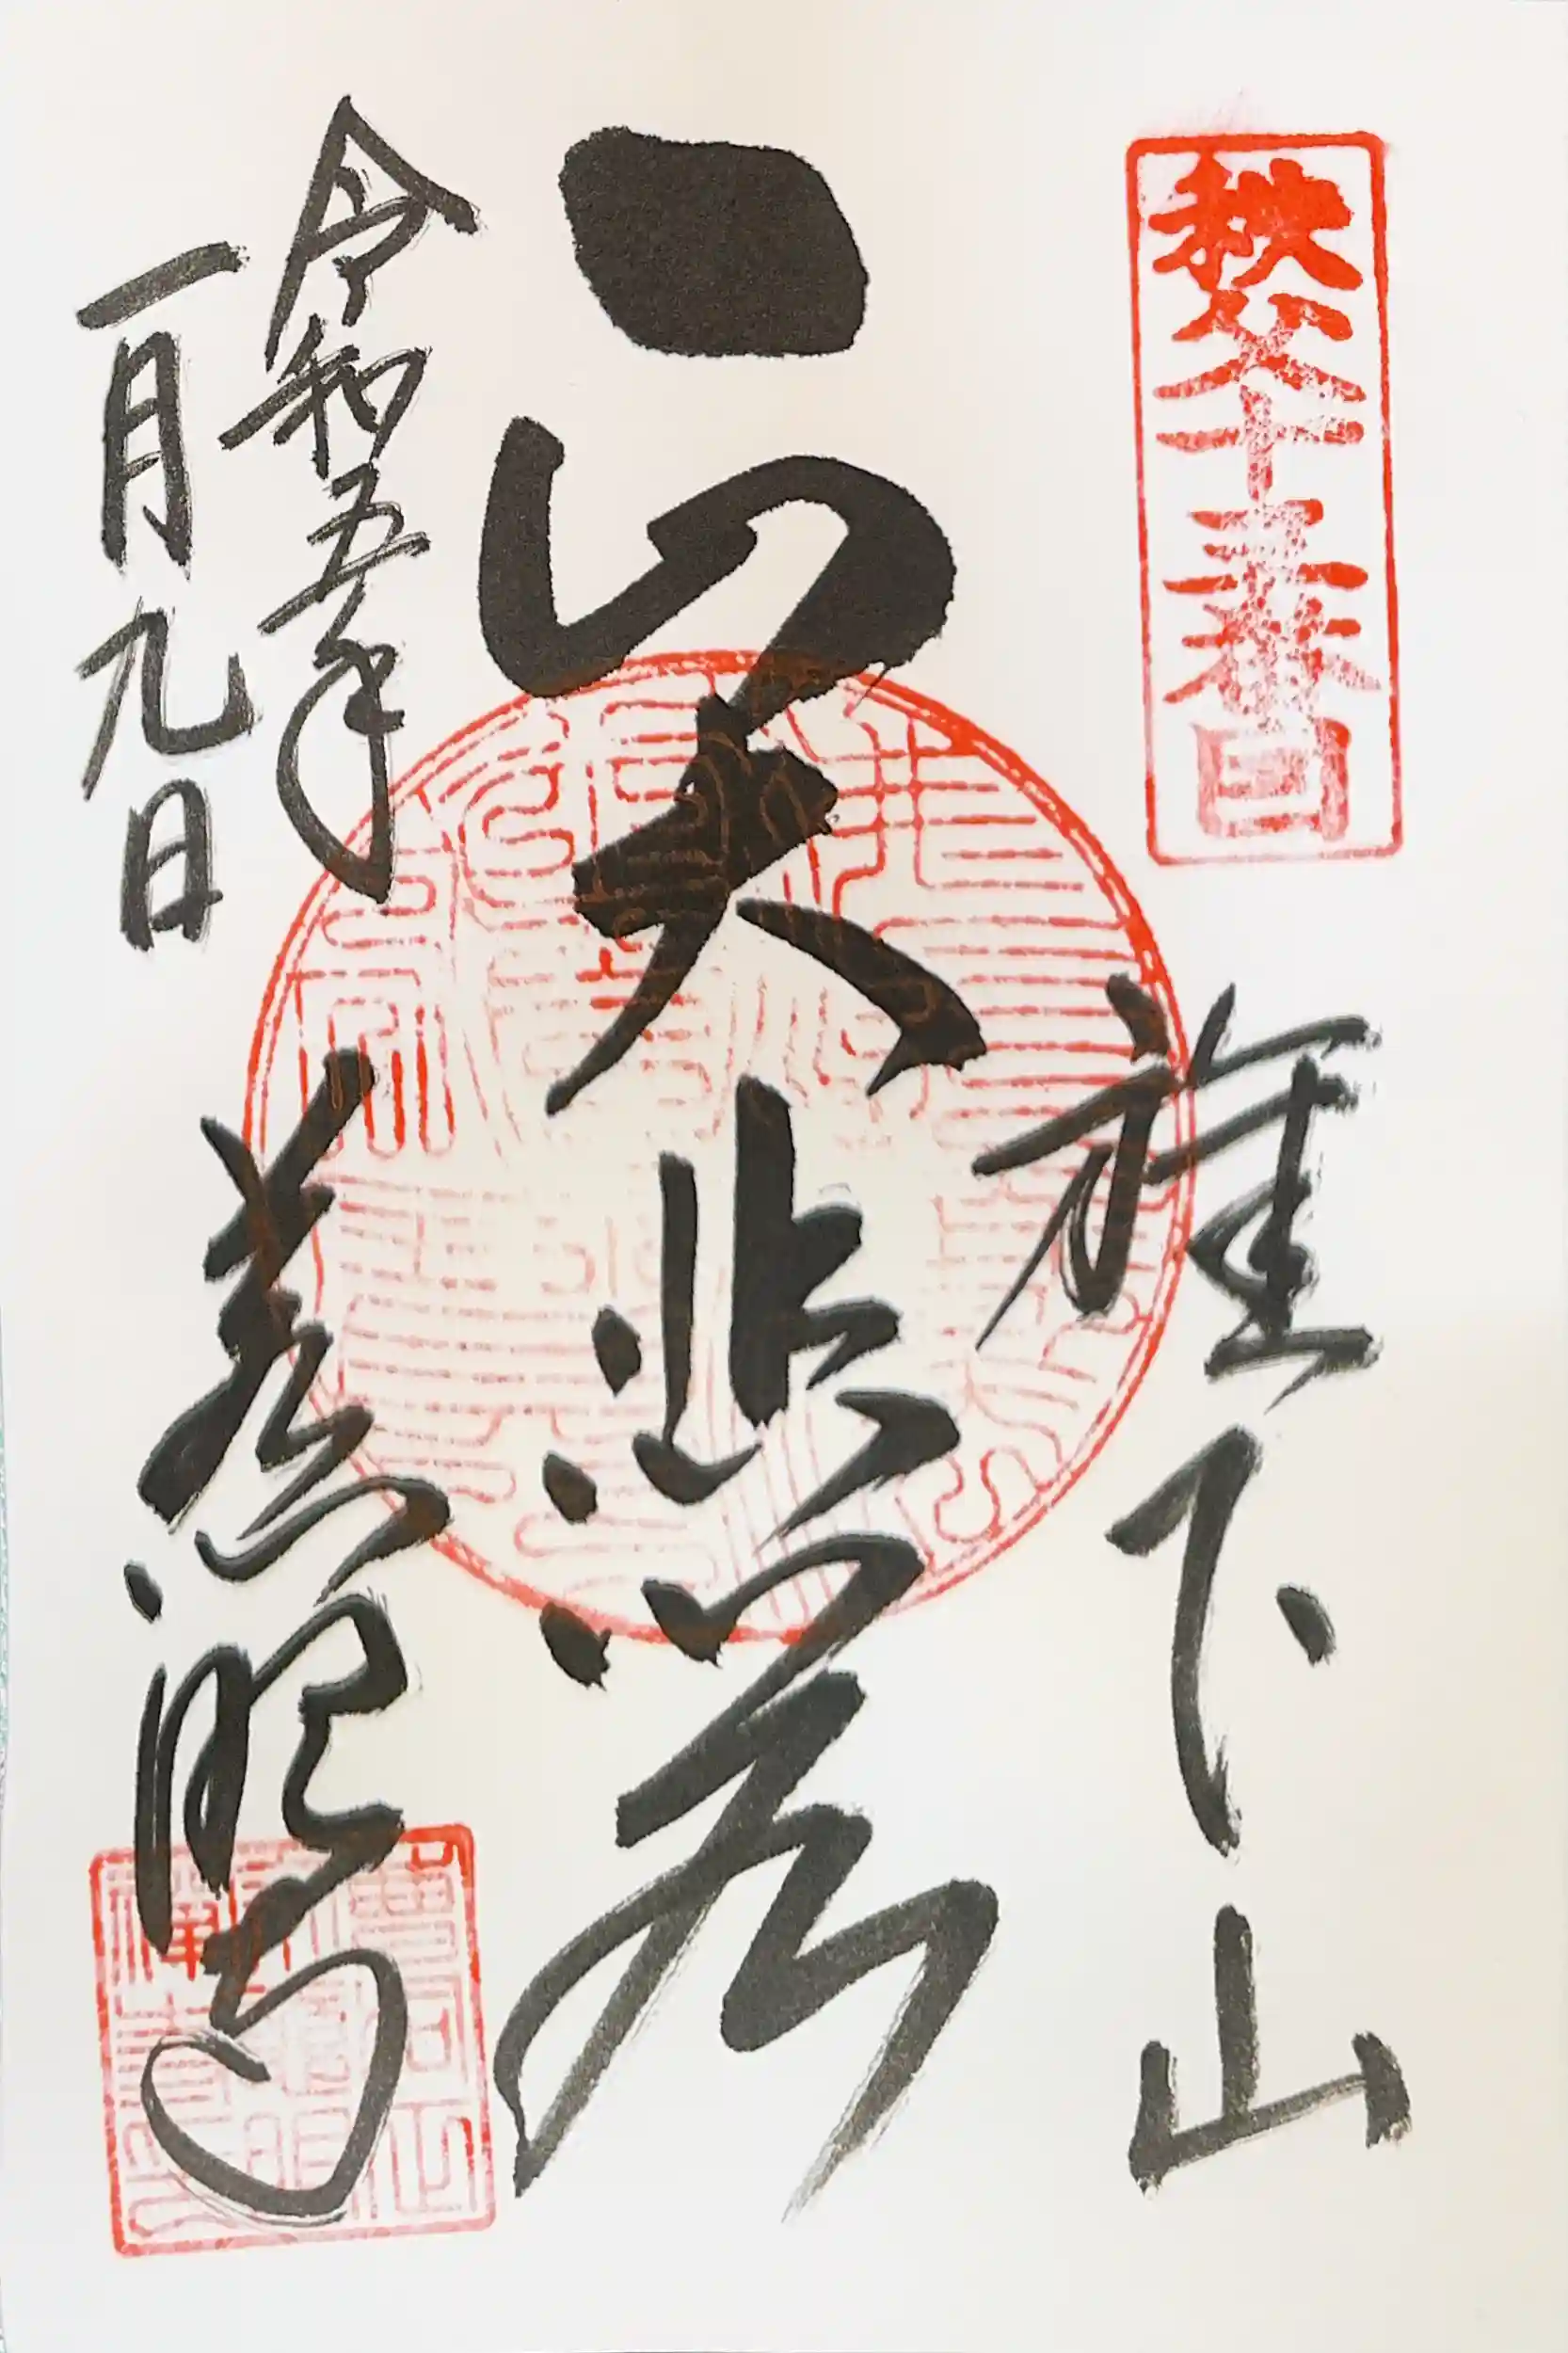 秩父十三番
旗下山
大悲
慈眼寺
令和五年
一月九日